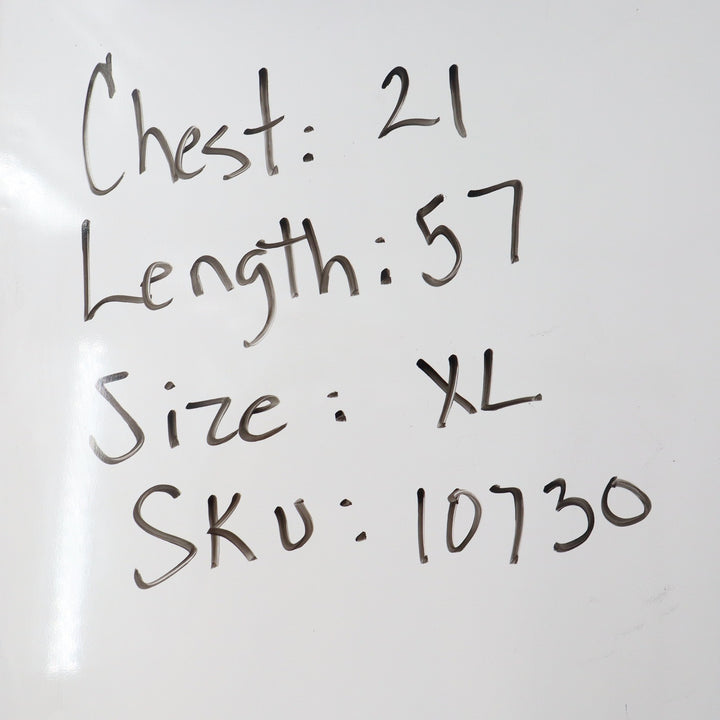 Chest: 21
Length: 57
Size: XL
SKU: 10730